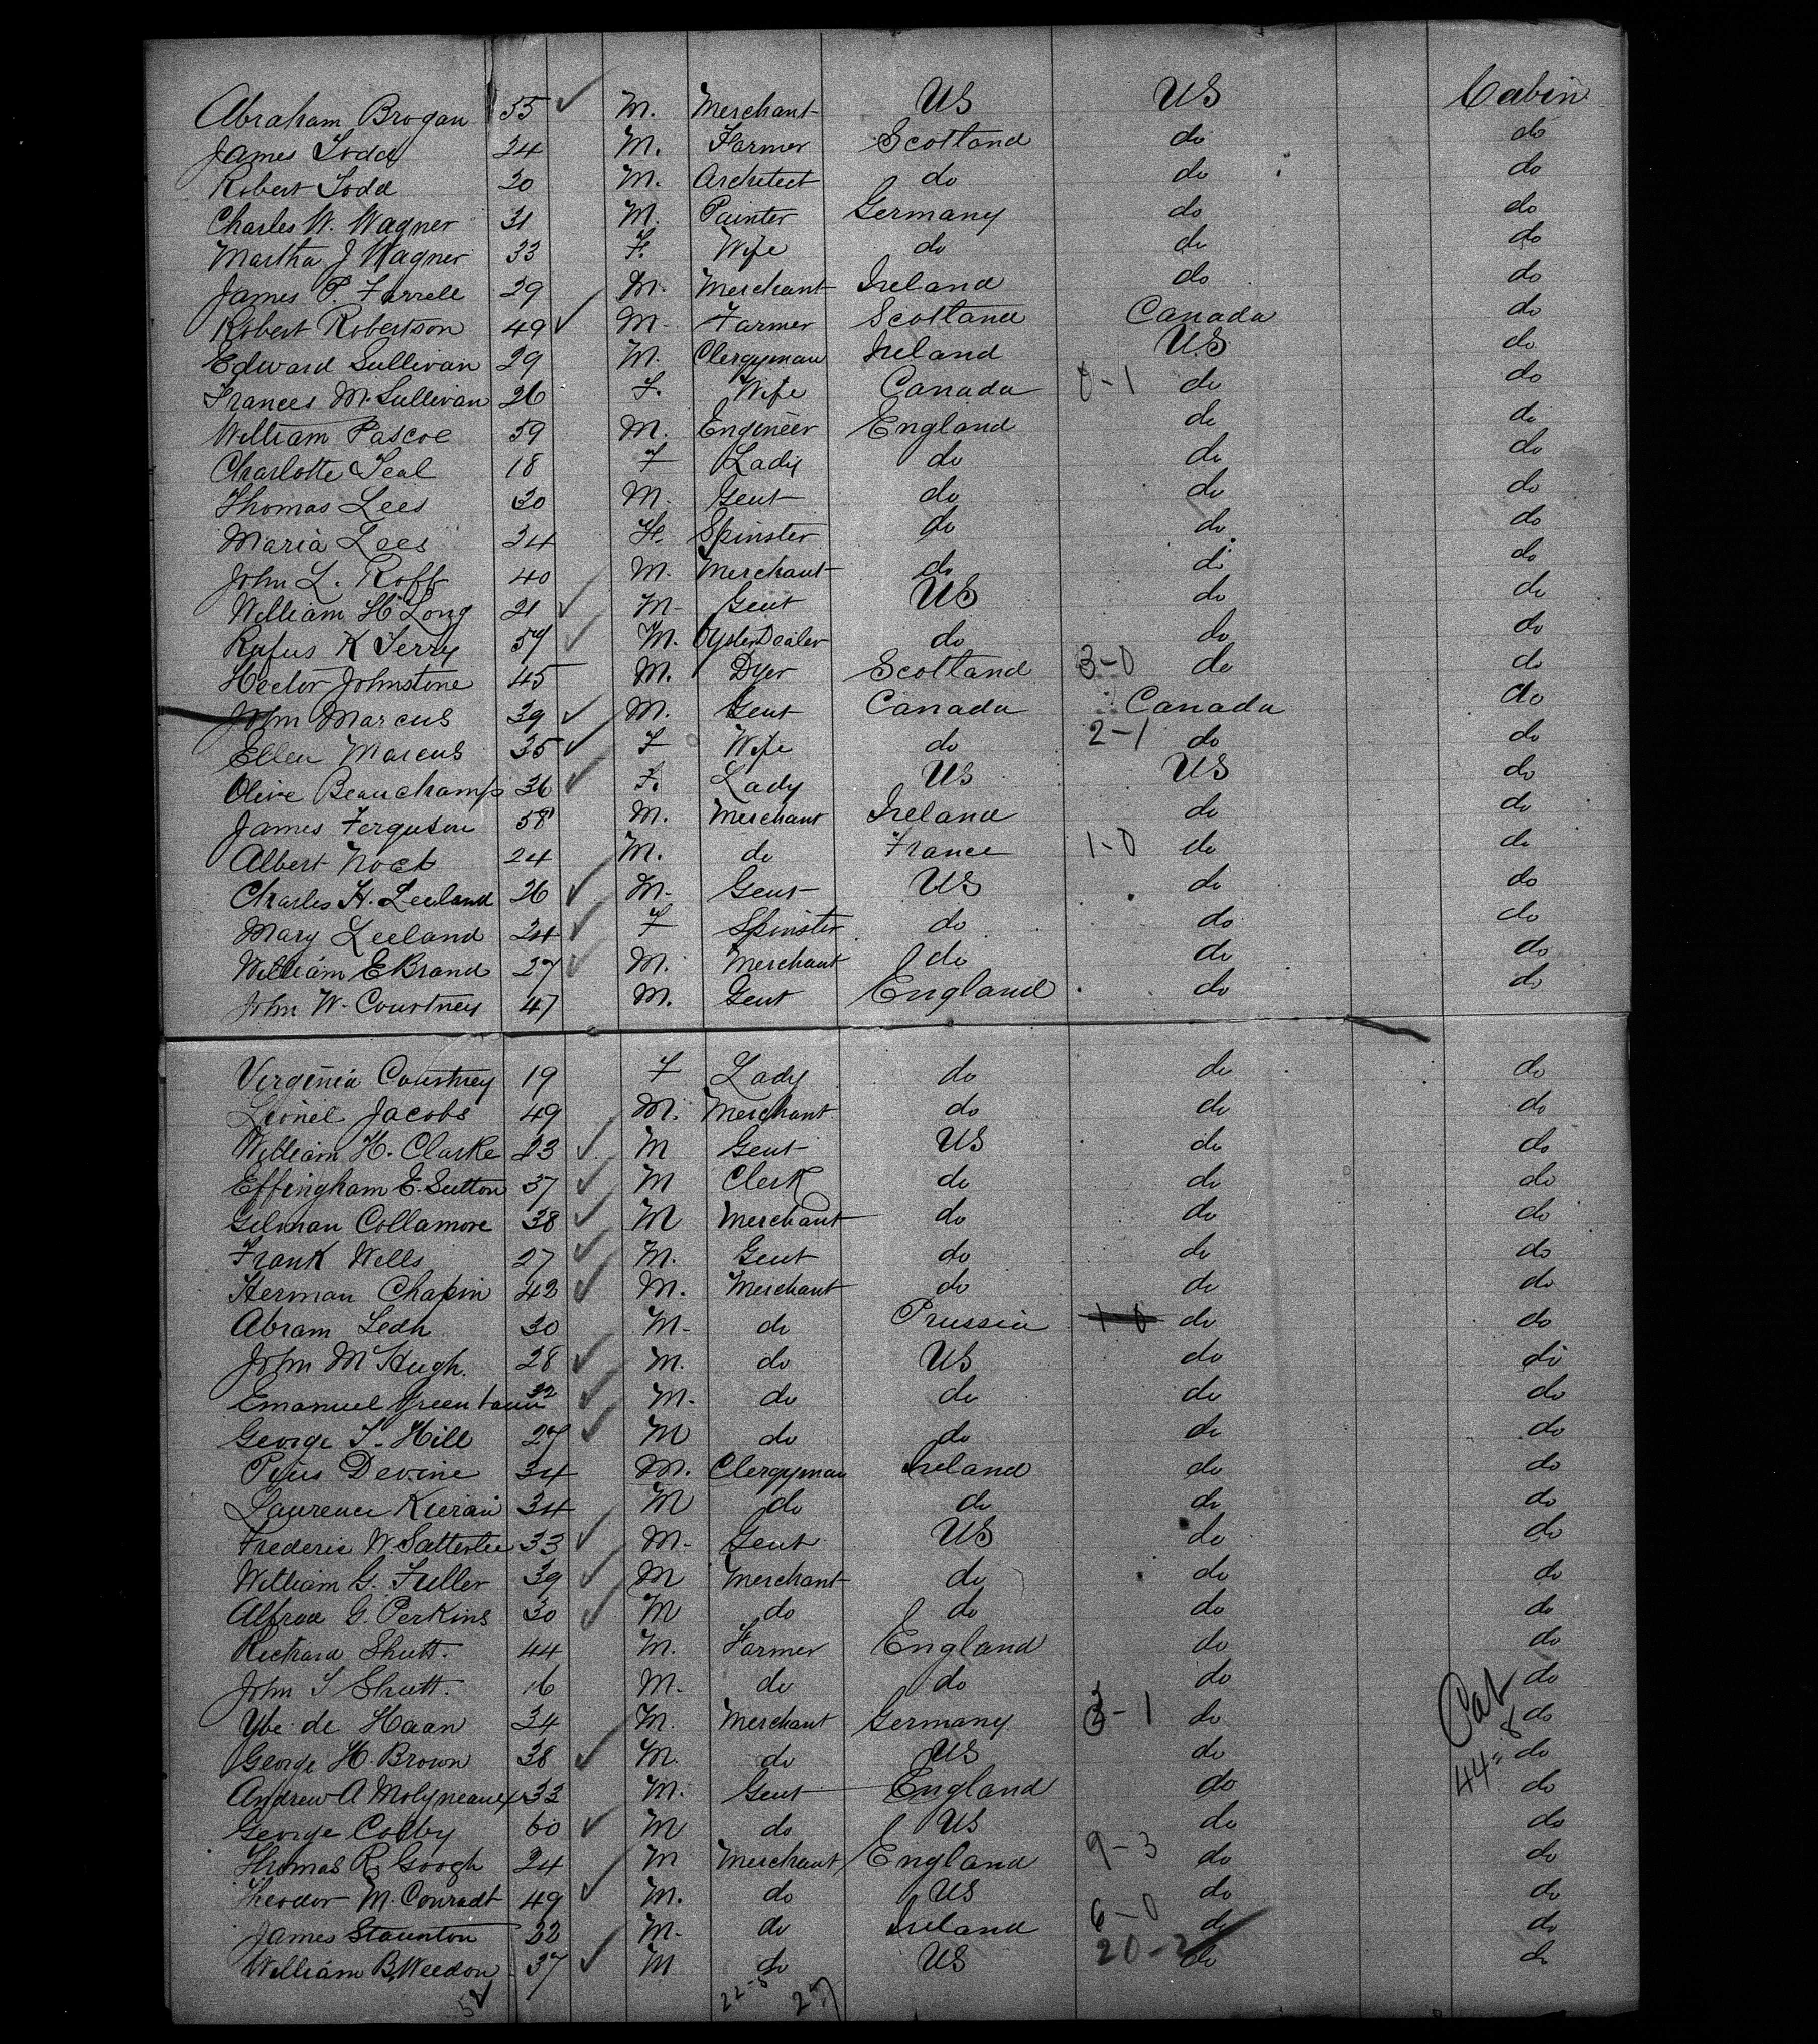 Abraham Brogan 55 ✓ M. Merchant US US Cabin
James Todd 24 M. Farmer Scotland do do
Robert Todd 20 M. Architect do do do
Charles W. Wagner 31 M. Painter Germany do do
Martha J Wagner 33 F. Wife do do do
James P. Farrell 29 M. Merchant Ireland do do
Robert Robertson 49 ✓ M. Farmer Scotland Canada do
Edward Sullivan 29 M. Clergyman Ireland US do
Frances M. Sullivan 26 F. Wife Canada 0-1 do do
William Pascoe 59 M. Engineer England do do
Charlotte Seal 18 F Lady do do do
Thomas Lees 30 M. Gent do do do
Maria Lees 24 F. Spinster do do do
John L. Roff 40 M. Merchant do do do
William H Long 21 ✓ M. Gent US do do
Rufus K Terry 57 ✓ M. Oyster Dealer do do do
Hector Johnstone 45 M. Dyer Scotland 3-0 do do
John Marcus 39 ✓ M. Gent Canada Canada do
Ellen Marcus 35 ✓ F Wife do 2-1 do do
Olive Beauchamp 36 ✓ F. Lady US US do
James Ferguson 58 M. Merchant Ireland do do
Albert 24 M. do France 1-0 do do
Charles H. Leeland 26 ✓ M. Gent US do do
Mary Leeland 24 ✓ F Spinster do do do
William E Brand 27 ✓ M. Merchant do do do
John W. Courtney 47 M. Gent England do do
Virginia Courtney 19 F Lady do do do
Lionel Jacobs 49 M. Merchant do do do
William H. Clarke 23 ✓ M Gent US do do
Effingham E. Sutton 37 ✓ M Clerk do do do
Gilman Collamore 38 ✓ M Merchant do do do
Frank Wells 27 ✓ M. Gent do do do
Herman Chapin 43 ✓ M. Merchant do do do
Abram 30 M. do Prussia 1-0 do do
John McHugh. 28 ✓ M. do US do do
Emanuel Greenbaum 32 ✓ M. do do do do
George T. Hill 27 ✓ M do do do do
Pius Devine 34 M. Clergyman Ireland do do
Laurence Kieran 34 M do do do do
Frederic W. Satterlee 33 ✓ M. Gent US do do
William G. Fuller 39 ✓ M Merchant do do do
Alfred G. Perkins 30 ✓ M do do do do
Richard Shutt. 44 M. Farmer England do do
John T Shutt. 16 M. do do do do
Ybe de Haan 34 M. Merchant Germany 3-1 do do
George H. Brown 38 ✓ M. do US do do
Andrew A Molyneaux 33 M. Gent England do do
George Colby 60 ✓ M do US do do
Thomas R. Googh 24 M Merchant England 9-3 do do
Theodor M. Conradt 49 ✓ M. do US do do
James Staunton 22 M. do Ireland 6-0 do do
William B. Weedon 37 ✓ M do US 20-2 do do
Cab
44" 8
52
22-5
27